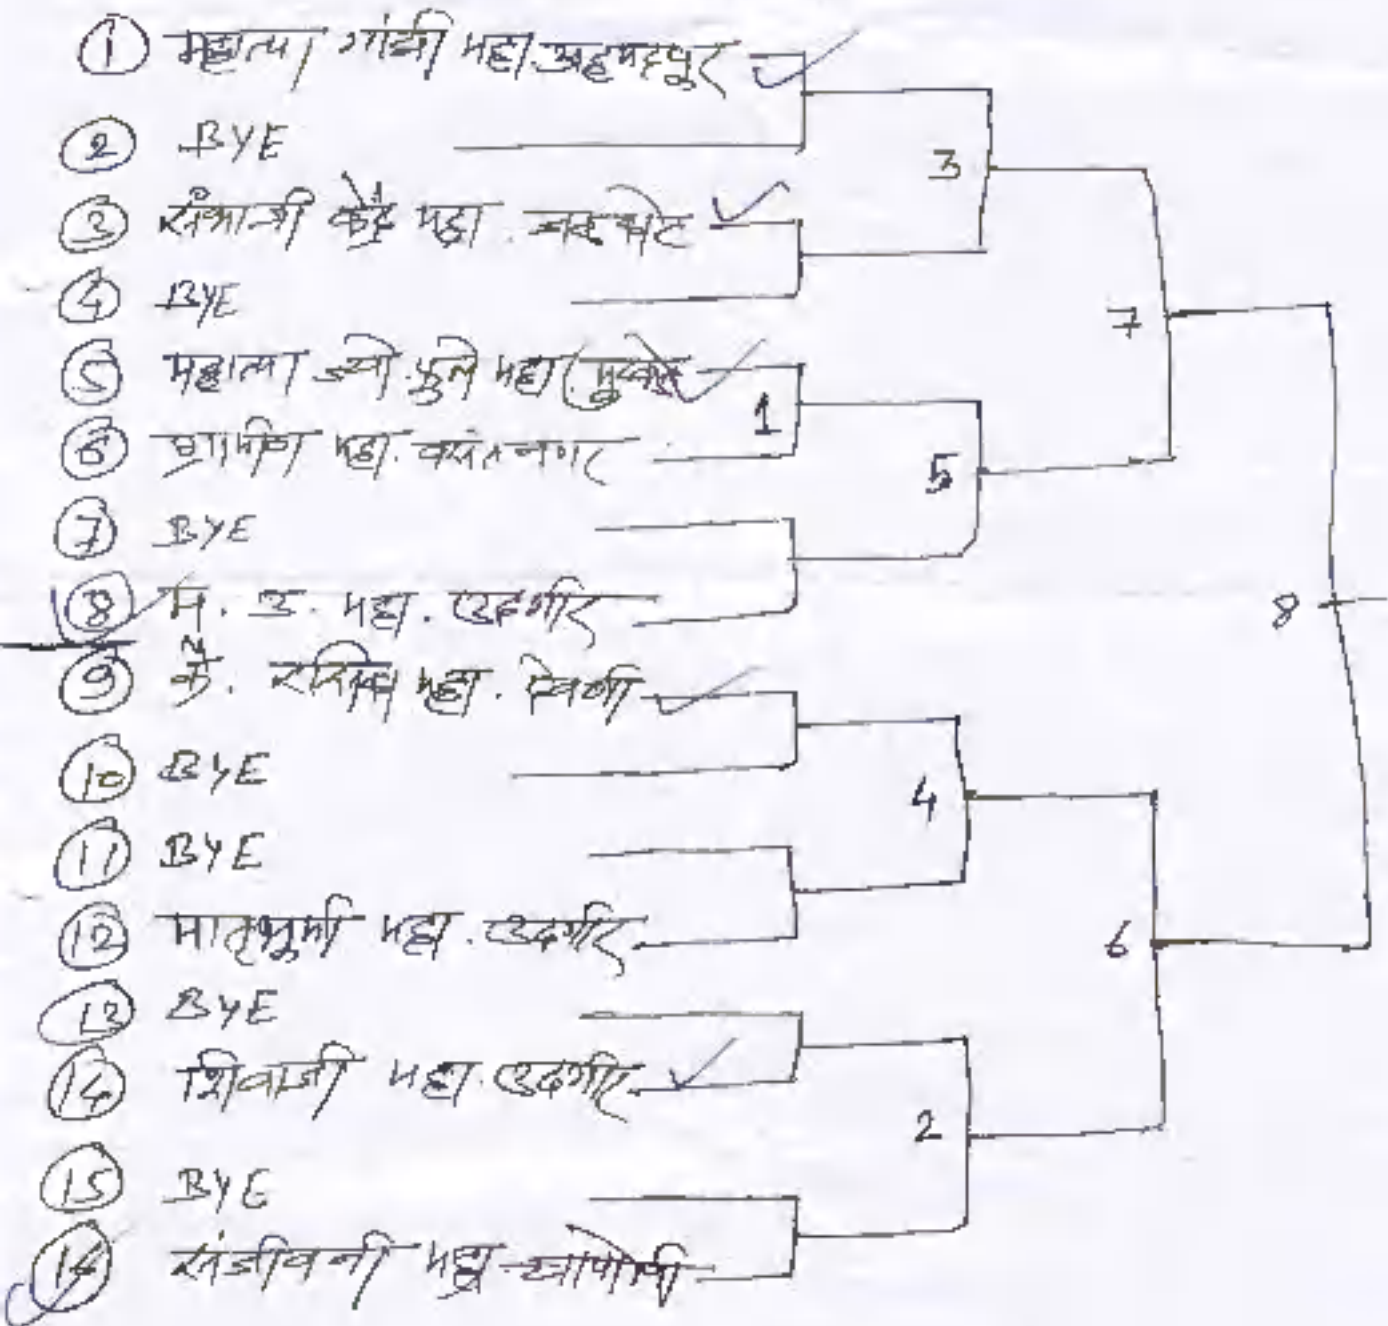 ① महात्मा गांधी महा. अहमदपूर
② BYE
③ संभाजी केंद्रे महा. जळकोट
④ BYE
⑤ महात्मा ज्यो. फुले महा. मुखेड
⑥ ग्रामीण महा. वसंतनगर
⑦ BYE
⑧ म. उ. महा. उदगीर
⑨ कै. रसिका महा. देवणी
⑩ BYE
⑪ BYE
⑫ मातृभूमी महा. उदगीर
⑬ BYE
⑭ शिवाजी महा. उदगीर
⑮ BYE
⑯ संजीवनी महा. चापोली
3
7
1
5
8
4
6
2